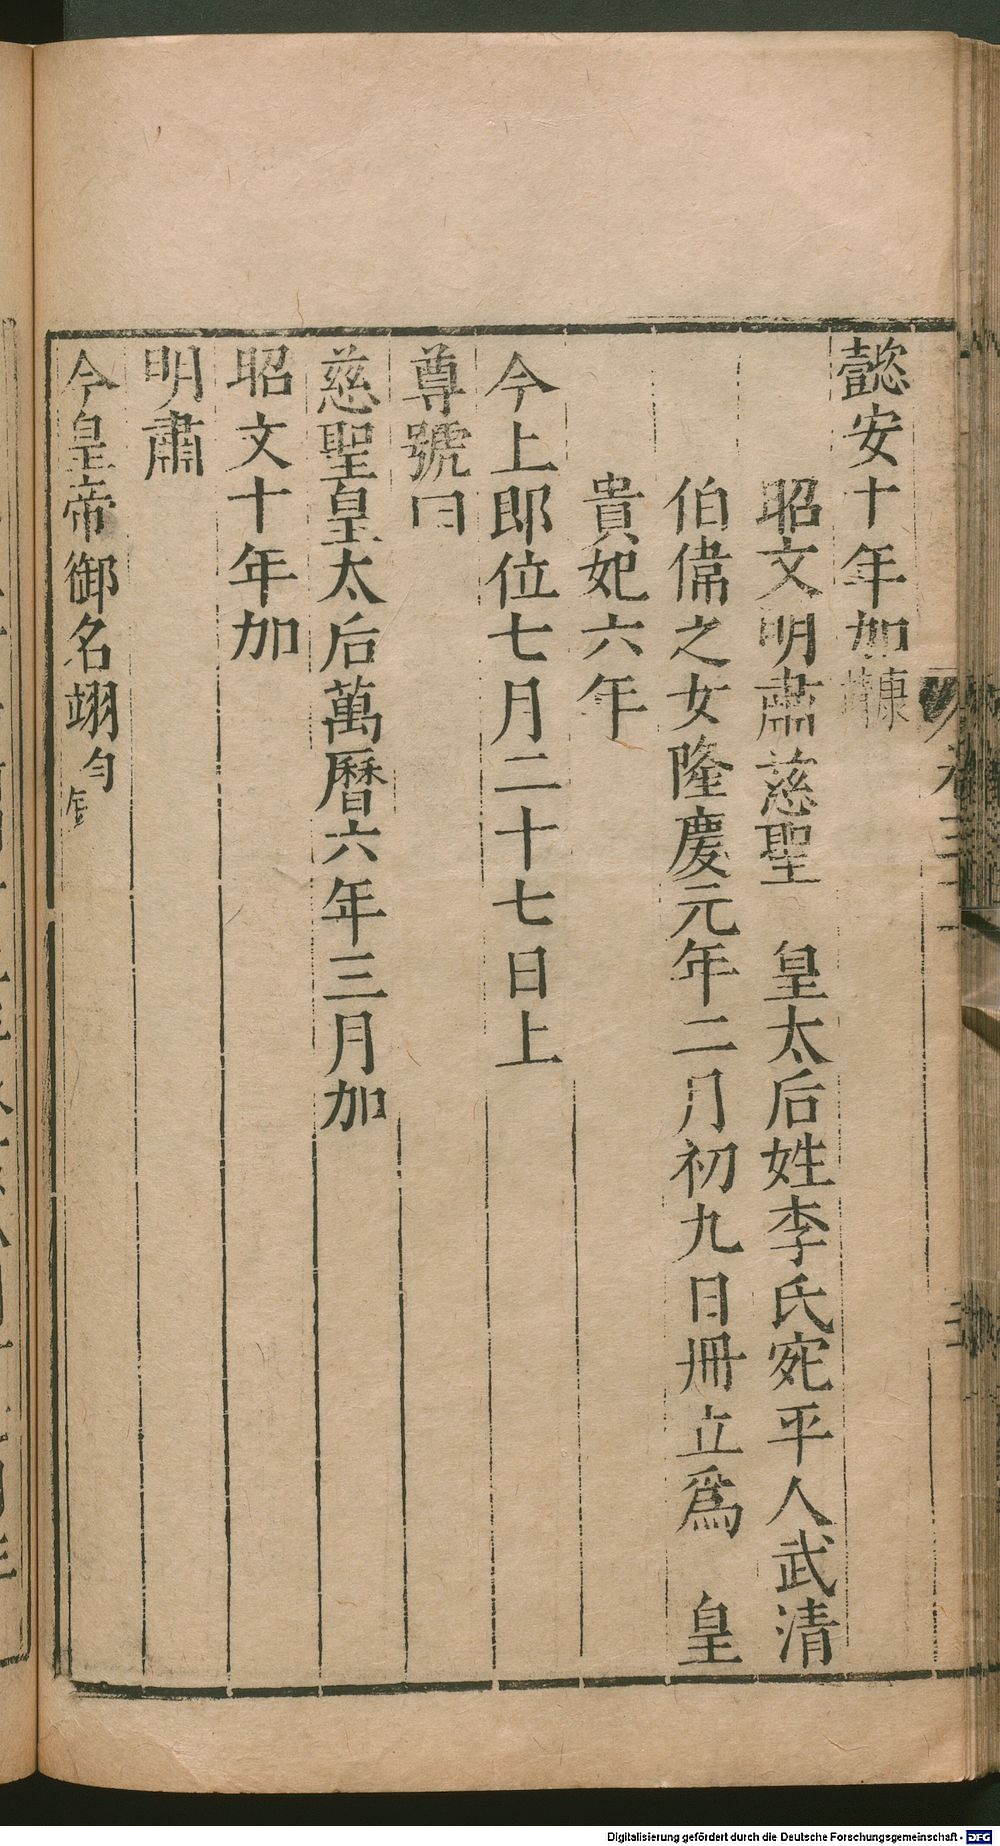 懿安十年加康靖
昭文明肅慈聖　皇太后姓李氏宛平人武清
伯偉之女隆慶元年二月初九日冊立爲　皇
貴妃六年
今上即位七月二十七日上
尊號曰
慈聖皇太后萬曆六年三月加
昭文十年加
明肅
今皇帝御名翊勻
Digitalisierung gefördert durch die Deutsche Forschungsgemeinschaft - DFG